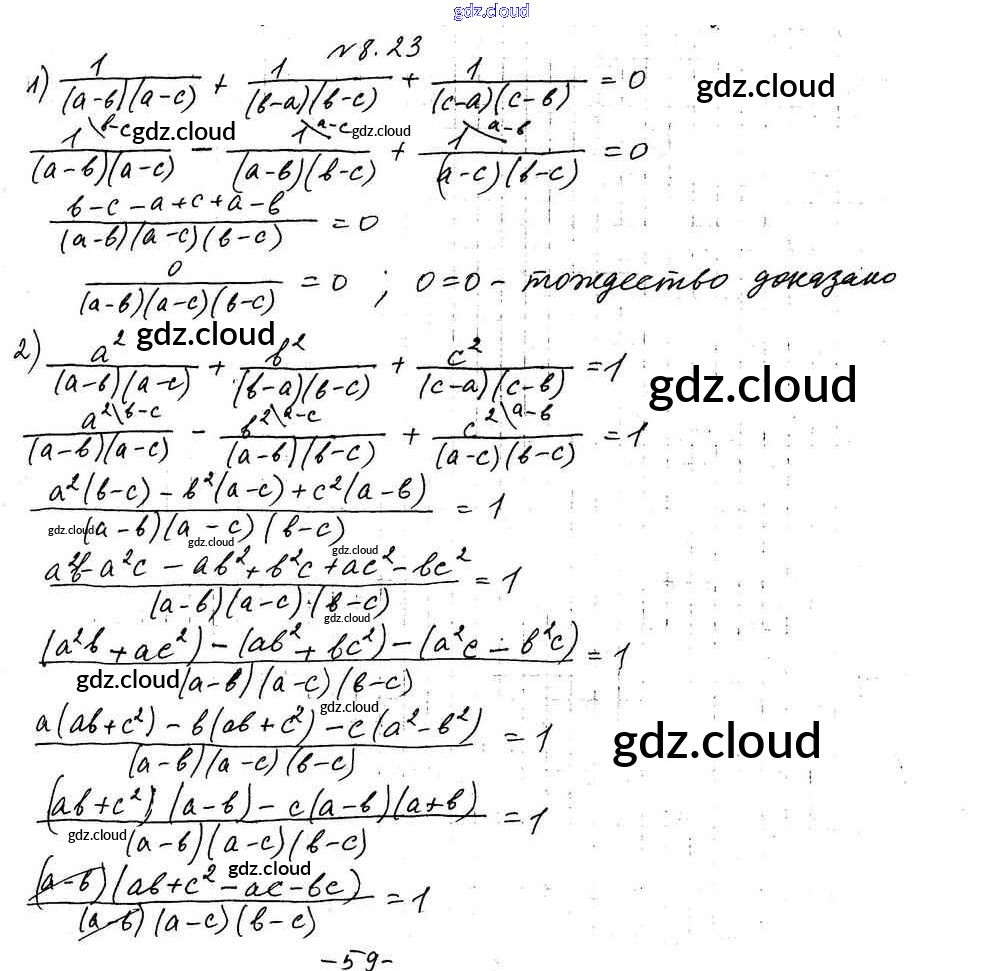 gdz.cloud
№8.23
1) 1/((a-в)(a-c)) + 1/((в-a)(в-c)) + 1/((c-a)(c-в)) = 0 gdz.cloud
1\в-c/((a-в)(a-c)) - 1\a-c/((a-в)(в-c)) + 1\a-в/((a-c)(в-c)) = 0 gdz.cloud gdz.cloud
(в-c-a+c+a-в)/((a-в)(a-c)(в-c)) = 0
0/((a-в)(a-c)(в-c)) = 0 ; 0=0 - тождество доказано
gdz.cloud
2) a²/((a-в)(a-c)) + в²/((в-a)(в-c)) + c²/((c-a)(c-в)) = 1 gdz.cloud
a²\в-c/((a-в)(a-c)) - в²\a-c/((a-в)(в-c)) + c²\a-в/((a-c)(в-c)) = 1
(a²(в-c) - в²(a-c) + c²(a-в))/((a-в)(a-c)(в-c)) = 1
gdz.cloud gdz.cloud gdz.cloud
(a²в - a²c - aв² + в²c + ac² - вc²)/((a-в)(a-c)(в-c)) = 1
gdz.cloud
((a²в + ac²) - (aв² + вc²) - (a²c - в²c))/((a-в)(a-c)(в-c)) = 1
gdz.cloud gdz.cloud
(a(aв+c²) - в(aв+c²) - c(a²-в²))/((a-в)(a-c)(в-c)) = 1 gdz.cloud
((aв+c²)(a-в) - c(a-в)(a+в))/((a-в)(a-c)(в-c)) = 1
gdz.cloud gdz.cloud
((a-в)(aв+c²-ac-вc))/((a-в)(a-c)(в-c)) = 1
-59-